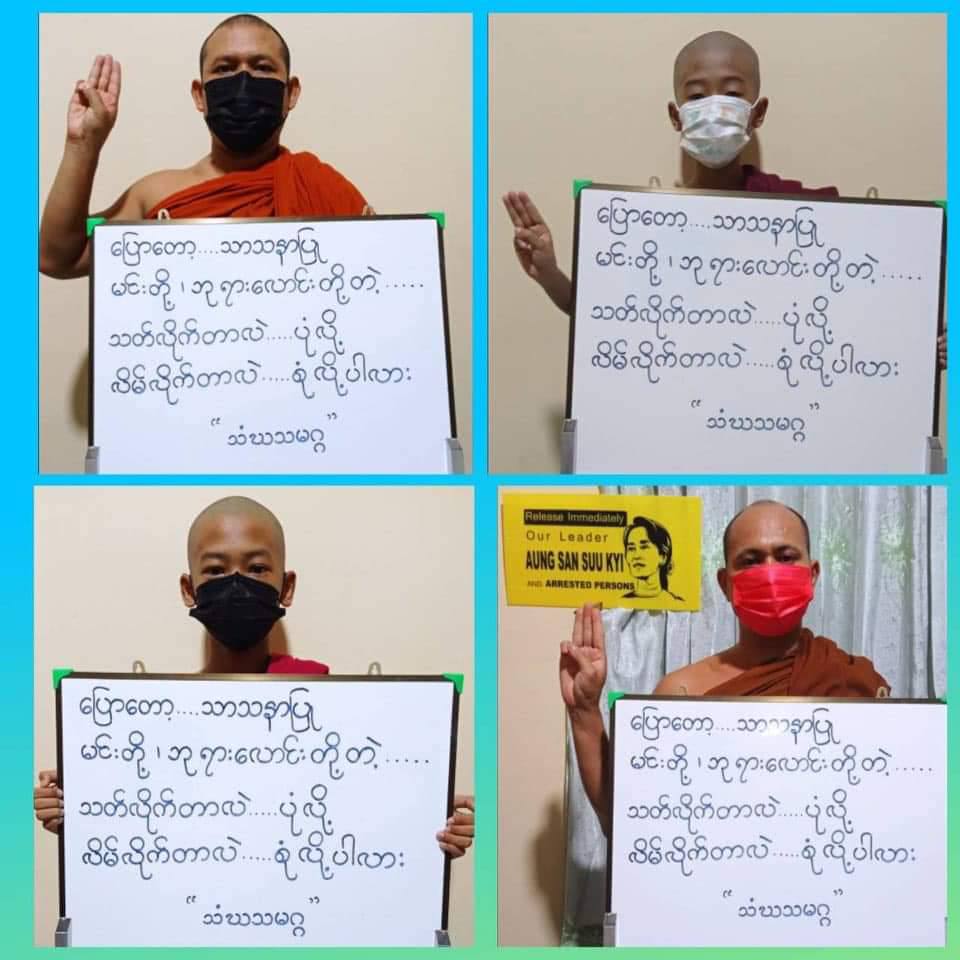 ပြောတော့....သာသနာပြု
မင်းတို့ ၊ ဘုရားလောင်းတို့တဲ့.....
သတ်လိုက်တာလဲ.....ပုံလို့
လိမ်လိုက်တာလဲ.....စုံလို့ပါလား
“သံဃသမဂ္ဂ”
ပြောတော့....သာသနာပြု
မင်းတို့ ၊ ဘုရားလောင်းတို့တဲ့.....
သတ်လိုက်တာလဲ.....ပုံလို့
လိမ်လိုက်တာလဲ.....စုံလို့ပါလား
“သံဃသမဂ္ဂ”
ပြောတော့....သာသနာပြု
မင်းတို့ ၊ ဘုရားလောင်းတို့တဲ့.....
သတ်လိုက်တာလဲ.....ပုံလို့
လိမ်လိုက်တာလဲ.....စုံလို့ပါလား
“သံဃသမဂ္ဂ”
Release Immediately
Our Leader
AUNG SAN SUU KYI
AND ARRESTED PERSONS
ပြောတော့....သာသနာပြု
မင်းတို့ ၊ ဘုရားလောင်းတို့တဲ့.....
သတ်လိုက်တာလဲ.....ပုံလို့
လိမ်လိုက်တာလဲ.....စုံလို့ပါလား
“သံဃသမဂ္ဂ”